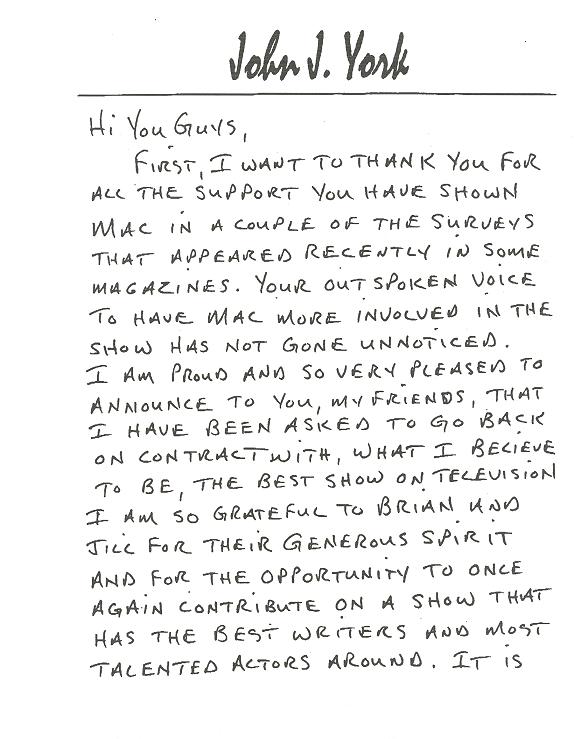 John J. York
Hi You Guys,
First, I want to thank you for
all the support you have shown
Mac in a couple of the surveys
that appeared recently in some
magazines. Your outspoken voice
to have Mac more involved in the
show has not gone unnoticed.
I am proud and so very pleased to
announce to you, my friends, that
I have been asked to go back
on contract with, what I believe
to be, the best show on television
I am so grateful to Brian and
Jill for their generous spirit
and for the opportunity to once
again contribute on a show that
has the best writers and most
talented actors around. It is